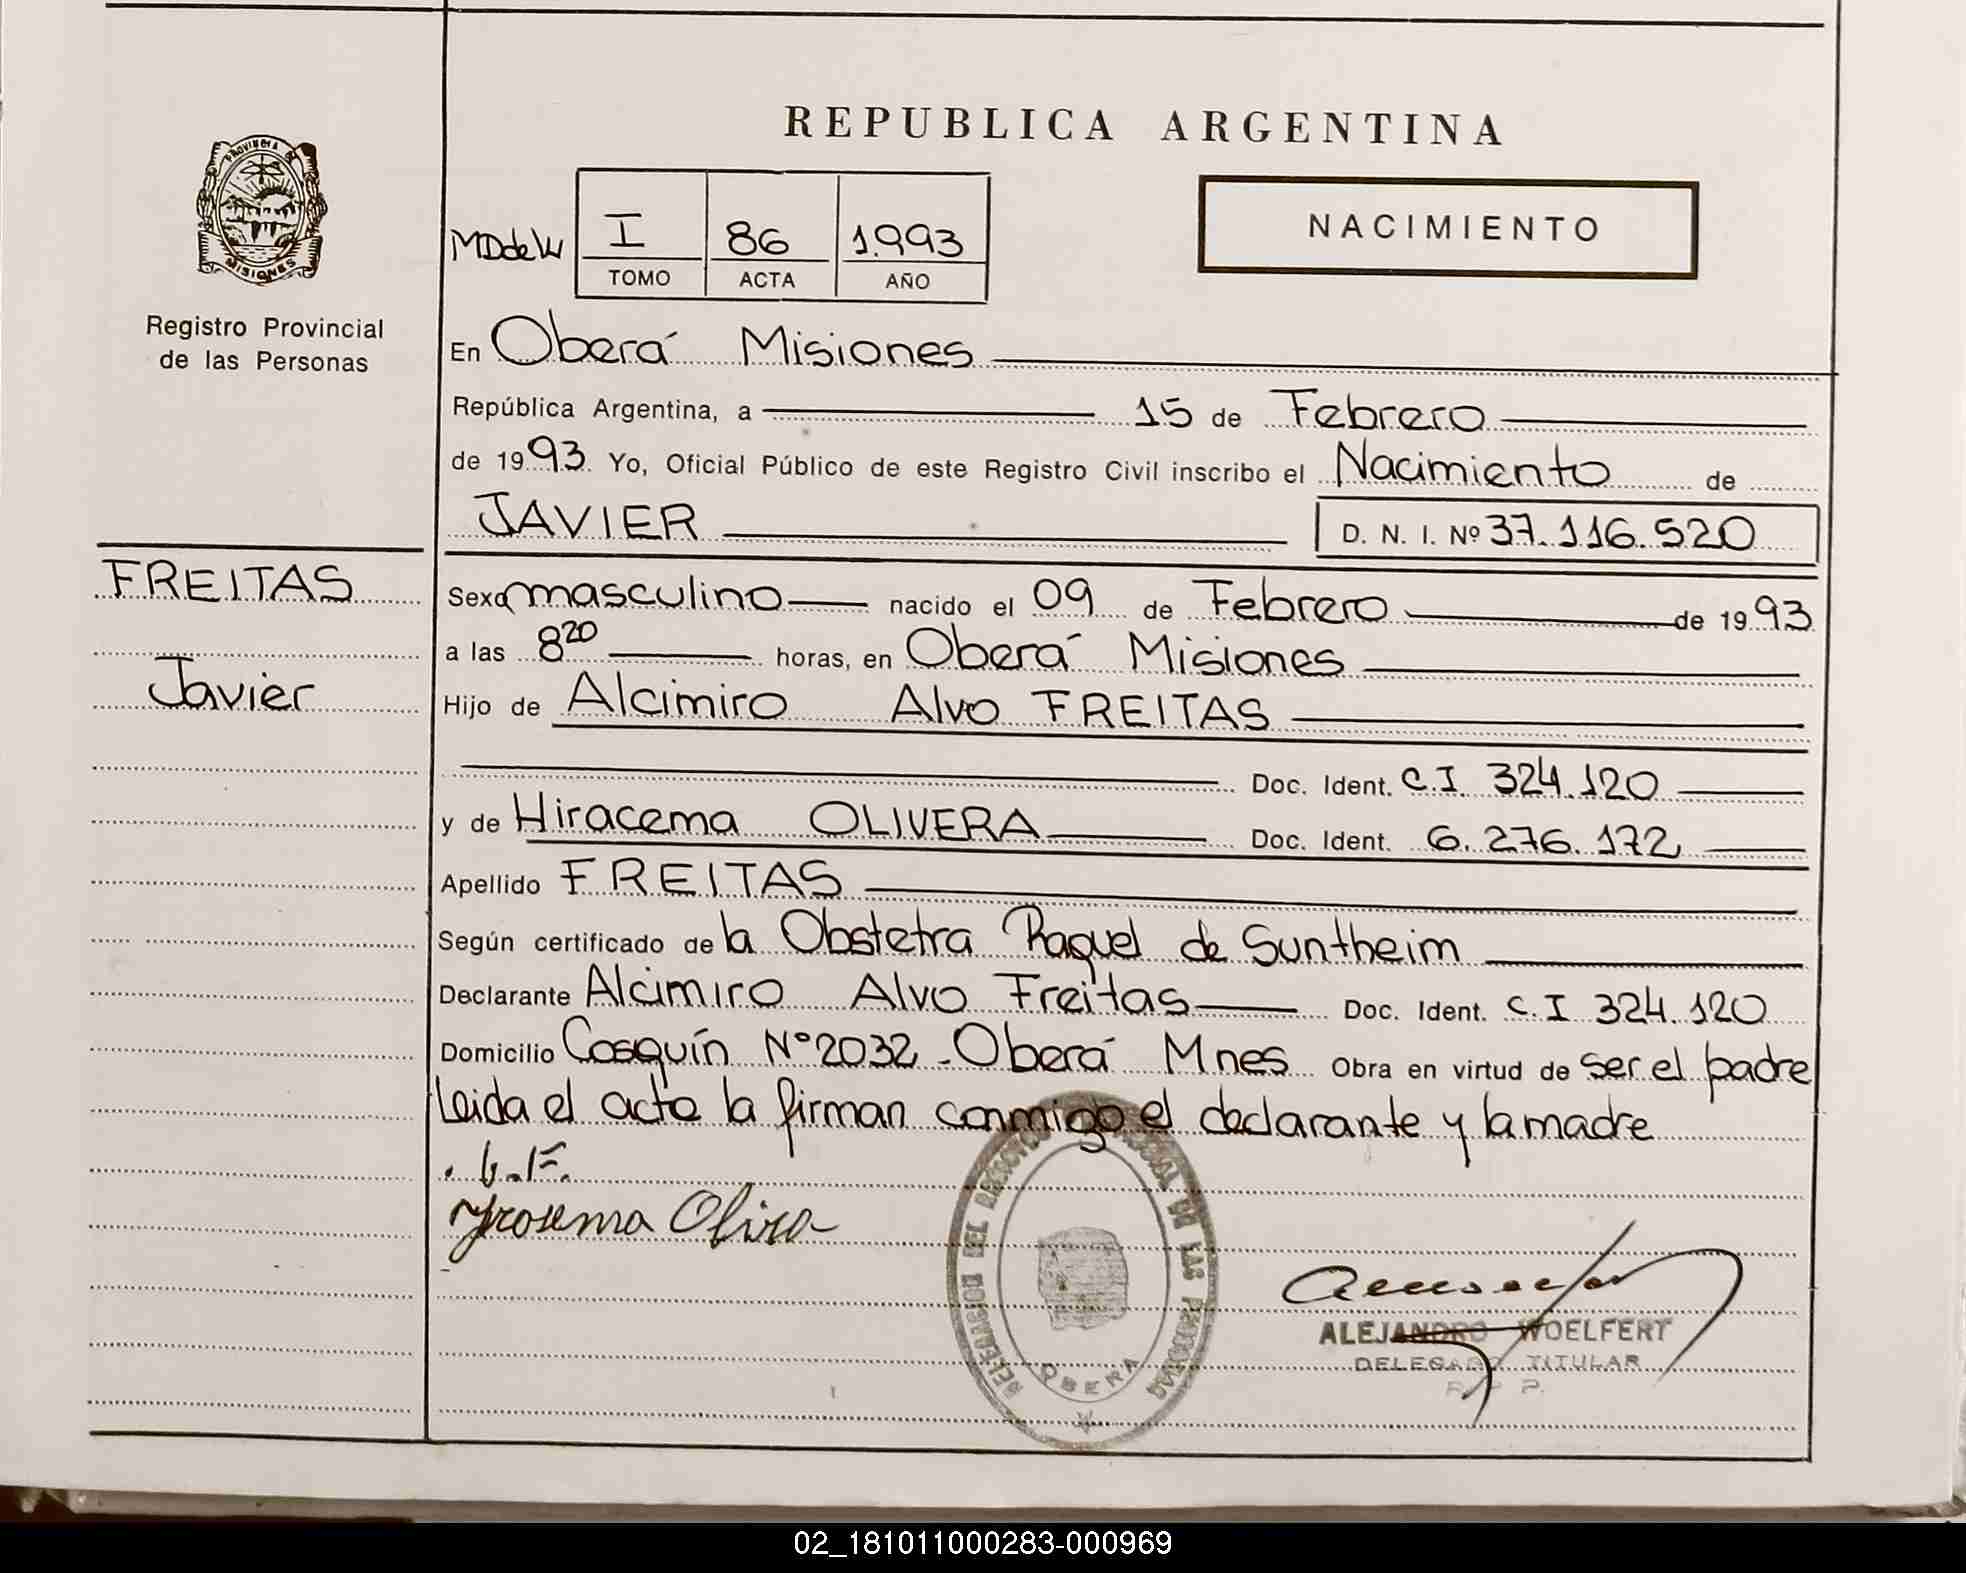 REPUBLICA ARGENTINA
PROVINCIA DE
MISIONES
NACIMIENTO
MDdeW I 86 1.993
TOMO ACTA AÑO
Registro Provincial
de las Personas
En Oberá Misiones
República Argentina, a 15 de Febrero
de 1993. Yo, Oficial Público de este Registro Civil inscribo el Nacimiento de
JAVIER D. N. I. Nº 37.116.520
FREITAS
Javier
Sexo masculino nacido el 09 de Febrero de 1993
a las 8 20 horas, en Oberá Misiones
Hijo de Alcimiro Alvo FREITAS
Doc. Ident. C.I. 324.120
y de Hiracema OLIVERA Doc. Ident. 6.276.172
Apellido FREITAS
Según certificado de la Obstetra Raquel de Suntheim
Declarante Alcimiro Alvo Freitas Doc. Ident. C.I 324.120
Domicilio Cosquín Nº 2032 - Oberá Mnes Obra en virtud de ser el padre
Leida el acta la firman conmigo el declarante y la madre
DELEGACION DEL REGISTRO PROVINCIAL DE LAS PERSONAS
OBERA
ALEJANDRO WOELFERT
DELEGADO TITULAR
02_181011000283-000969